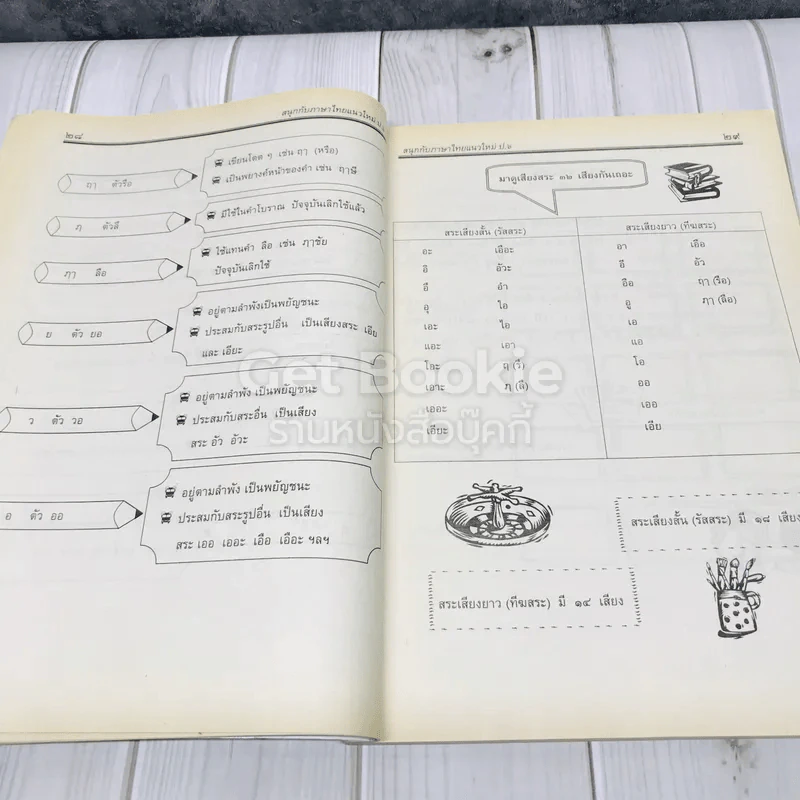 ๒๘
สนุกกับภาษาไทยแนวใหม่
ฤา ตัวรือ
เขียนโดด ๆ เช่น ฤา (หรือ)
เป็นพยางค์หน้าของคำ เช่น ฤาษี
ฦ ตัวลึ
มีใช้ในคำโบราณ ปัจจุบันเลิกใช้แล้ว
ฦา ลือ
ใช้แทนคำ ลือ เช่น ฦาชัย
ปัจจุบันเลิกใช้
ย ตัว ยอ
อยู่ตามลำพังเป็นพยัญชนะ
ประสมกับสระรูปอื่น เป็นเสียงสระ เอีย
และ เอียะ
ว ตัว วอ
อยู่ตามลำพัง เป็นพยัญชนะ
ประสมกับสระอื่น เป็นเสียง
สระ อัว อัวะ
อ ตัว ออ
อยู่ตามลำพัง เป็นพยัญชนะ
ประสมกับสระรูปอื่น เป็นเสียง
สระ เออ เออะ เอือ เอือะ ฯลฯ
สนุกกับภาษาไทยแนวใหม่
๒๙
มาดูเสียงสระ ๓๒ เสียงกันเถอะ
สระเสียงสั้น (รัสสระ) สระเสียงยาว (ทีฆสระ)
อะ เอือะ อา เอือ
อิ อัวะ อี อัว
อึ อำ อือ ฤา (รือ)
อุ ไอ อู ฦา (ลือ)
เอะ ใอ เอ
แอะ เอา แอ
โอะ ฤ (รึ) โอ
เอาะ ฦ (ลึ) ออ
เออะ เออ
เอียะ เอีย
สระเสียงสั้น (รัสสระ) มี ๑๘ เสียง
สระเสียงยาว (ทีฆสระ) มี ๑๔ เสียง
Get Bookie
ร้านหนังสือบุ๊คกี้